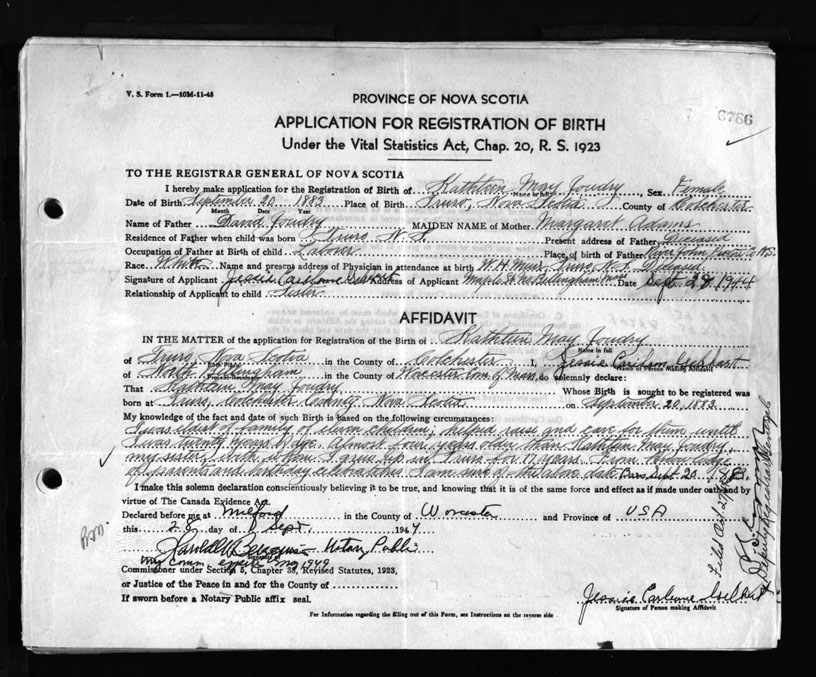 V. S. Form 1.—10M-11-43
PROVINCE OF NOVA SCOTIA
6786
APPLICATION FOR REGISTRATION OF BIRTH
Under the Vital Statistics Act, Chap. 20, R. S. 1923
TO THE REGISTRAR GENERAL OF NOVA SCOTIA
I hereby make application for the Registration of Birth of Kathleen May Joudry Sex Female
Name in full
Date of Birth September 20 1883 Place of Birth Truro, Nova Scotia County of Colchester
Month Date Year
Name of Father David Joudry MAIDEN NAME of Mother Margaret Adams
Residence of Father when child was born Truro N. S. Present address of Father Deceased
Occupation of Father at Birth of child Laborer Place of birth of Father River John Pictou Co N.S.
Race White Name and present address of Physician in attendance at birth W. H. Muir, Truro, N. S. Deceased
Signature of Applicant Jessie Address of Applicant Maple St No Bellingham Mass Date Sept. 28 1944
Relationship of Applicant to child Sister
AFFIDAVIT
IN THE MATTER of the application for Registration of the Birth of Kathleen May Joudry
Name in full
of Truro Nova Scotia in the County of Colchester I, Jessie
Name of Person making Affidavit
of North Bellingham in the County of Worcester Com of Mass, do solemnly declare:
That Kathleen May Joudry Whose Birth is sought to be registered was
born at Truro, Colchester County, Nova Scotia on September 20, 1883
My knowledge of the fact and date of such Birth is based on the following circumstances:
I was eldest of family of eleven children, helped raise and care for them until
I was twenty years of age. Almost four years older than Kathleen May Joudry,
my sister, both at home. I grew up in Truro for 17 years. From knowledge
of parents and birthday celebrations I am sure of the above date Born Sept. 20 1883.
I make this solemn declaration conscientiously believing it to be true, and knowing that it is of the same force and effect as if made under oath and by
virtue of The Canada Evidence Act.
Declared before me at Milford in the County of Worcester and Province of USA
this 28 day of Sept. 1944
Harold Notary Public
my comm. expires 1949
Commissioner under Section 5, Chapter 38, Revised Statutes, 1923,
or Justice of the Peace in and for the County of
If sworn before a Notary Public affix seal.
Jessie
Signature of Person making Affidavit
For Information regarding the filling out of this Form, see Instructions on the reverse side
Filed Oct. 27
Deputy Registrar General